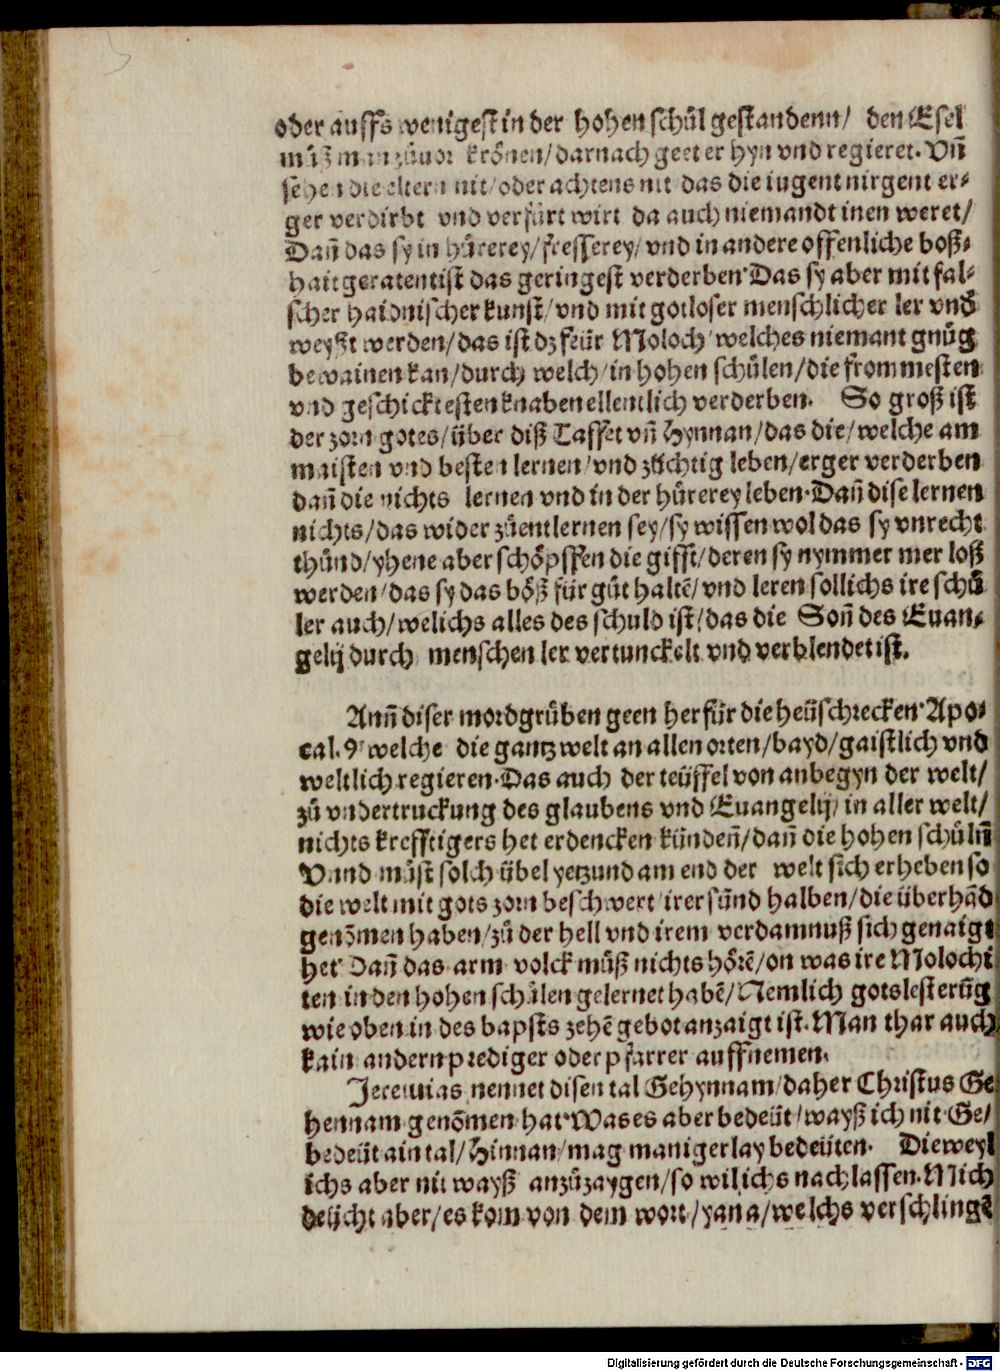 oder auffs wenigest in der hohen schůl gestandenn/ den Esel
můß man zůuor krönen/darnach geet er hyn vnd regieret. Vñ
sehen die eltern nit/oder achtens nit das die iugent nirgent er⸗
ger verdirbt vnd verfürt wirt da auch niemandt inen weret/
Dañ das sy in hůrerey/fresserey/vnd in andere offenliche boß⸗
hait geraten ist das geringest verderben·Das sy aber mit fal⸗
scher haidnischer kunst/vnd mit gotloser menschlicher ler vnd
weyßt werden/das ist dz feür Moloch/welches niemant gnůg
bewainen kan/durch welch/in hohen schůlen/die frommesten
vnd geschicktesten knaben ellentlich verderben. So groß ist
der zorn gotes/über diß Taffet vñ Hynnan/das die/welche am
maisten vnd besten lernen/vnd züchtig leben/erger verderben
dañ die nichts lernen vnd in der hůrerey leben·Dañ dise lernen
nichts/das wider zůentlernen sey/sy wissen wol das sy vnrecht
thůnd/yhene aber schöpffen die gifft/deren sy nymmer mer loß
werden/das sy das böß für gůt haltē/vnd leren sollichs ire schů
ler auch/welichs alles des schuld ist/das die Soñ des Euan⸗
gelij durch menschen ler vertunckelt vnd verblendet ist.
Auñ diser mordgrůben geen herfür die heüschrecken·Apo⸗
cal.9·welche die gantz welt an allen orten/bayd/gaistlich vnd
weltlich regieren·Das auch der teüffel von anbegyn der welt/
zů vndertruckung des glaubens vnd Euangelij/in aller welt/
nichts krefftigers het erdencken kündeñ/dañ die hohen schůlñ
Vnnd můst solch übel yetzund am end der welt sich erheben so
die welt mit gots zorn beschwert/irer sünd halben/die überhād
genōmen haben/zů der hell vnd irem verdamnuß sich genaigt
het·Dañ das arm volck můß nichts hörē/on was ire Molochi
ten in den hohen schůlen gelernet habē/Nemlich gotslesterūg
wie oben in des bapsts zehē gebot anzaigt ist. Man thar auch
kain andern prediger oder pfarrer auffnemen.
Jeremias nennet disen tal Gehynnam/daher Christus Ge
hennam genōmen hat·Was es aber bedeüt/wayß ich nit Ge/
bedeüt ain tal/Hinnan/mag manigerlay bedeüten. Dieweyl
ichs aber nit wayß anzůzaygen/so wil ichs nachlassen. Mich
deücht aber/es kom von dem wort/yana/welchs verschlingē
Digitalisierung gefördert durch die Deutsche Forschungsgemeinschaft - DFG